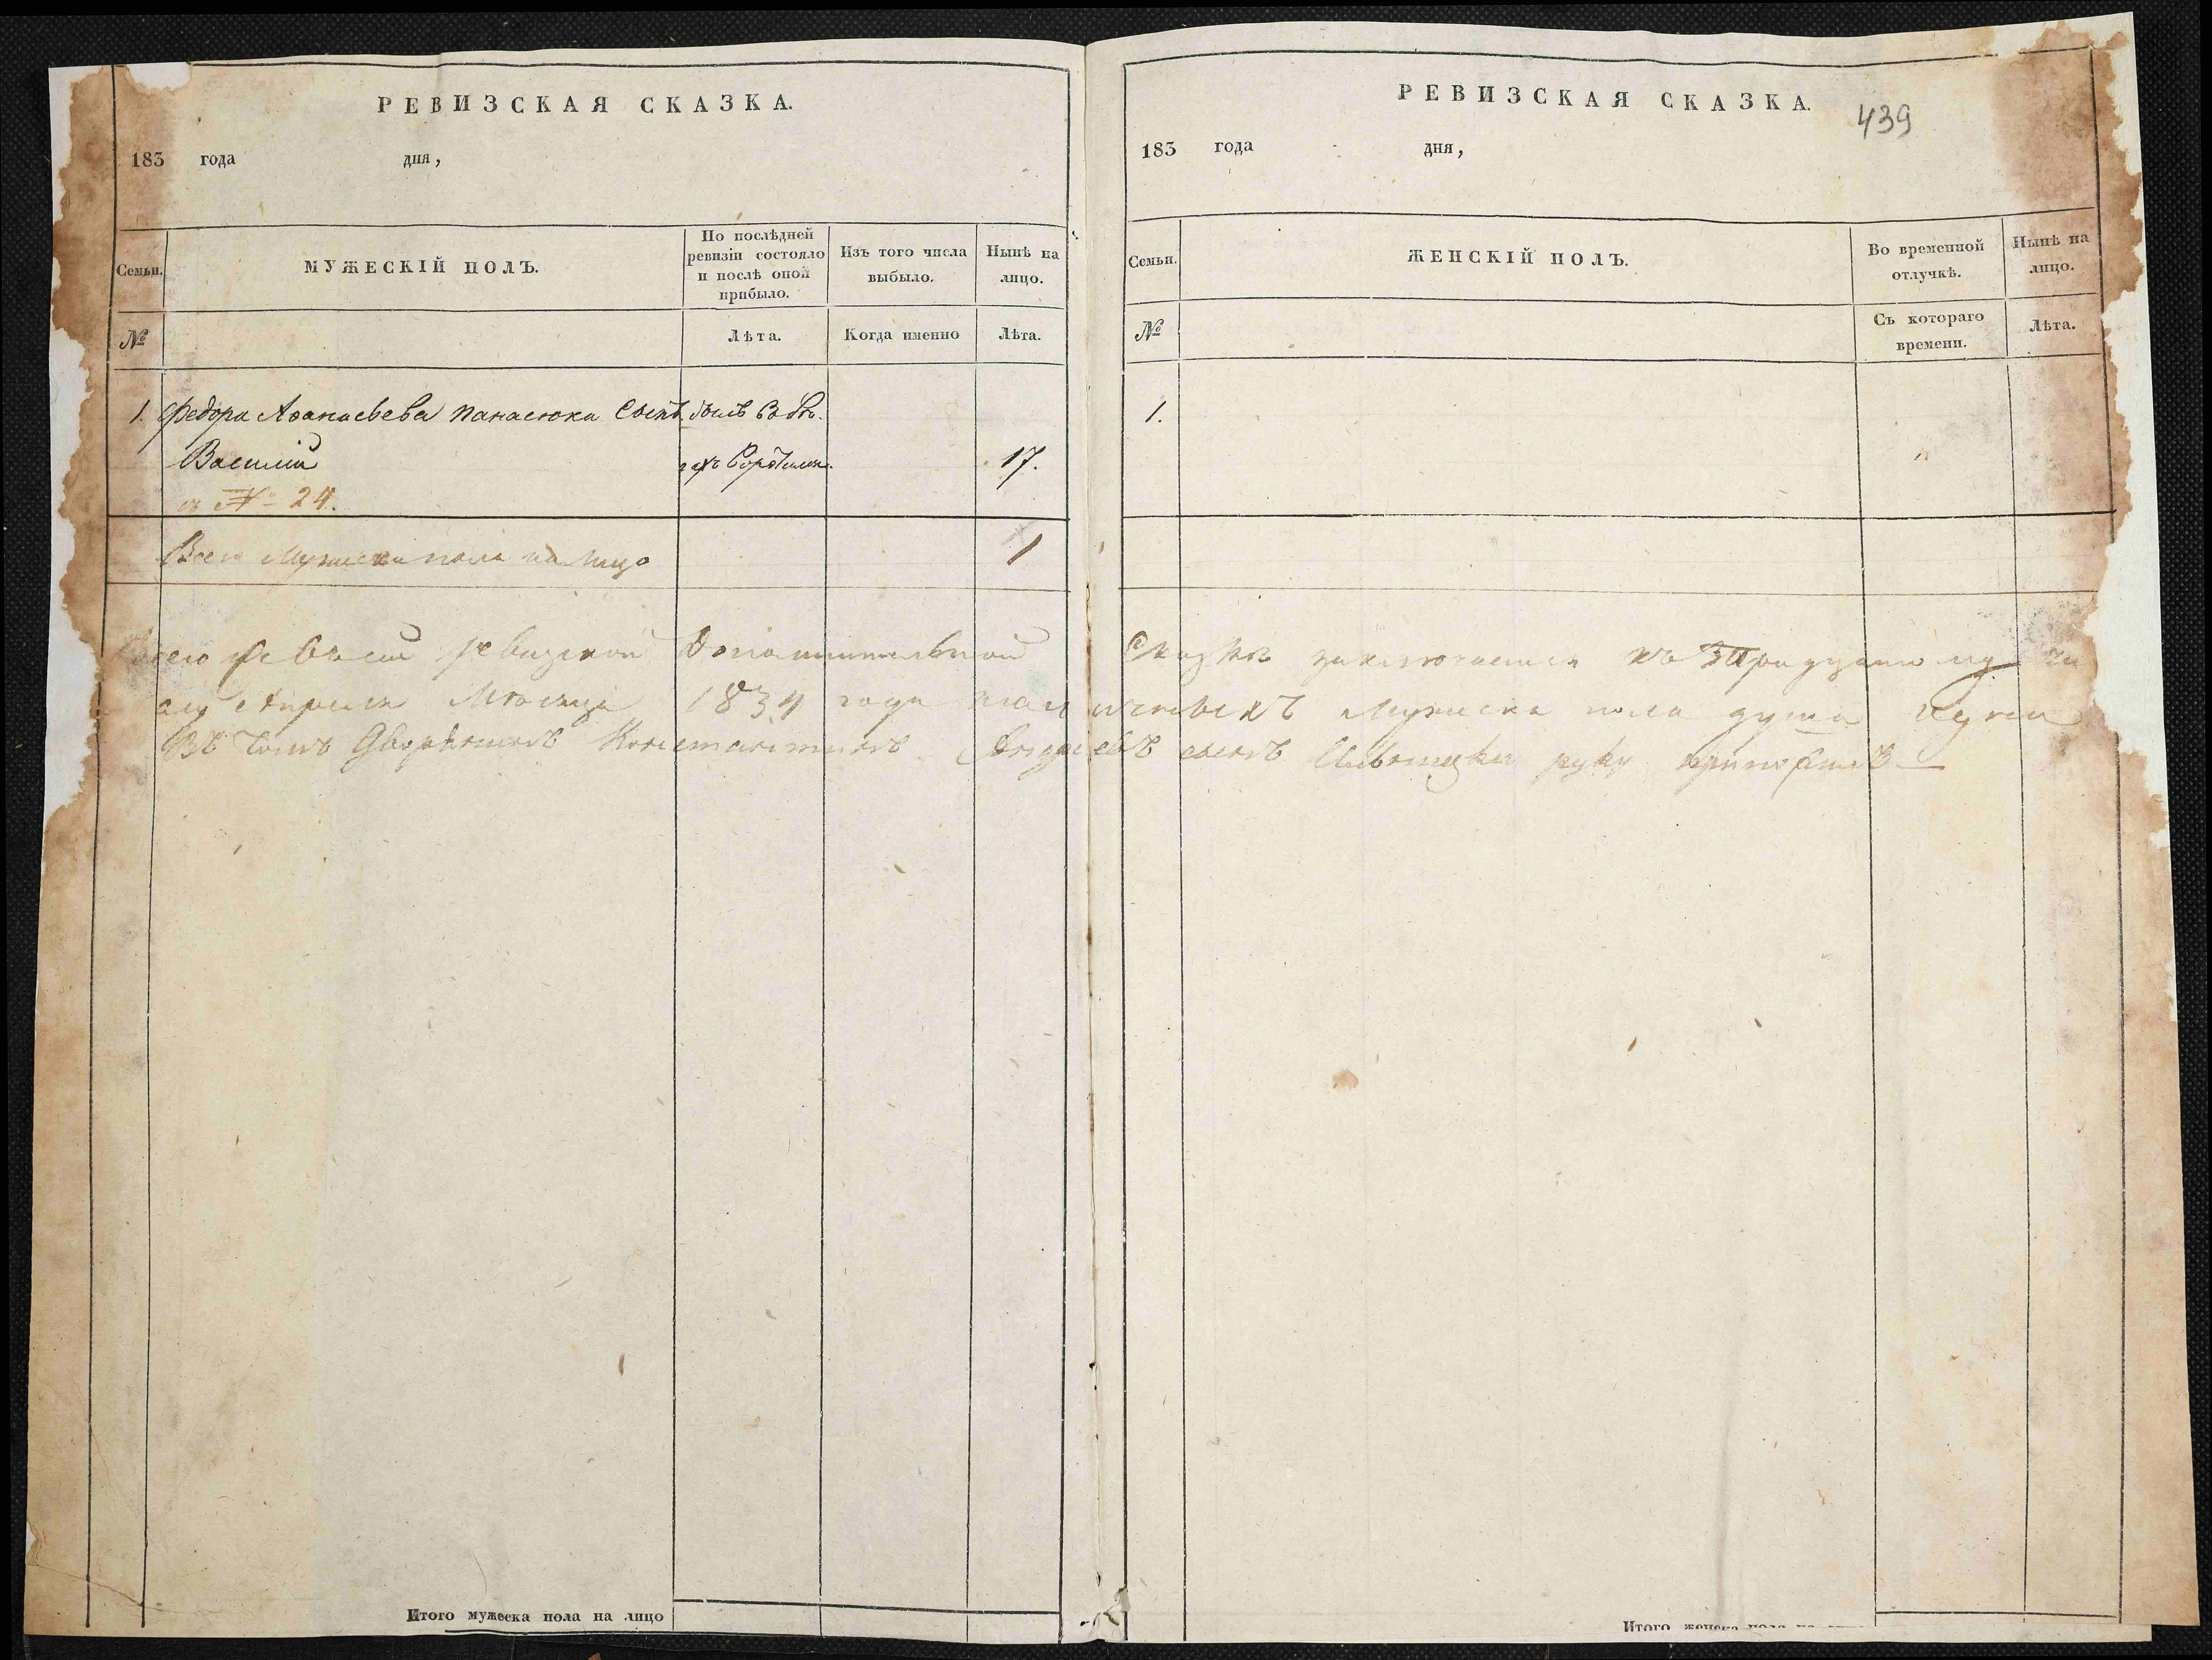 РЕВИЗСКАЯ СКАЗКА.
183 года дня,
Семьи.
МУЖЕСКІЙ ПОЛЪ.
По послѣдней ревизіи состояло и послѣ оной прибыло.
Изъ того числа выбыло.
Нынѣ на лицо.
№
Лѣта.
Когда именно
Лѣта.
1. Федора Афанасьева Панасюка Сынъ былъ въ бѣ-
Василій гахъ 17.
№ 24.
Всего Мужеска пола на лицо 1
Итого мужеска пола на лицо
РЕВИЗСКАЯ СКАЗКА.
439
183 года дня,
Семьи.
ЖЕНСКІЙ ПОЛЪ.
Во временной отлучкѣ.
Нынѣ на лицо.
№
Съ котораго времени.
Лѣта.
1.
ревизской Дополнительной Сказкѣ заключается къ
Апреля Мѣсяца 1834 года Мужеска пола душа
Въ томъ Дворянинъ Константинъ сынъ руку приложилъ
Итого женска пола на